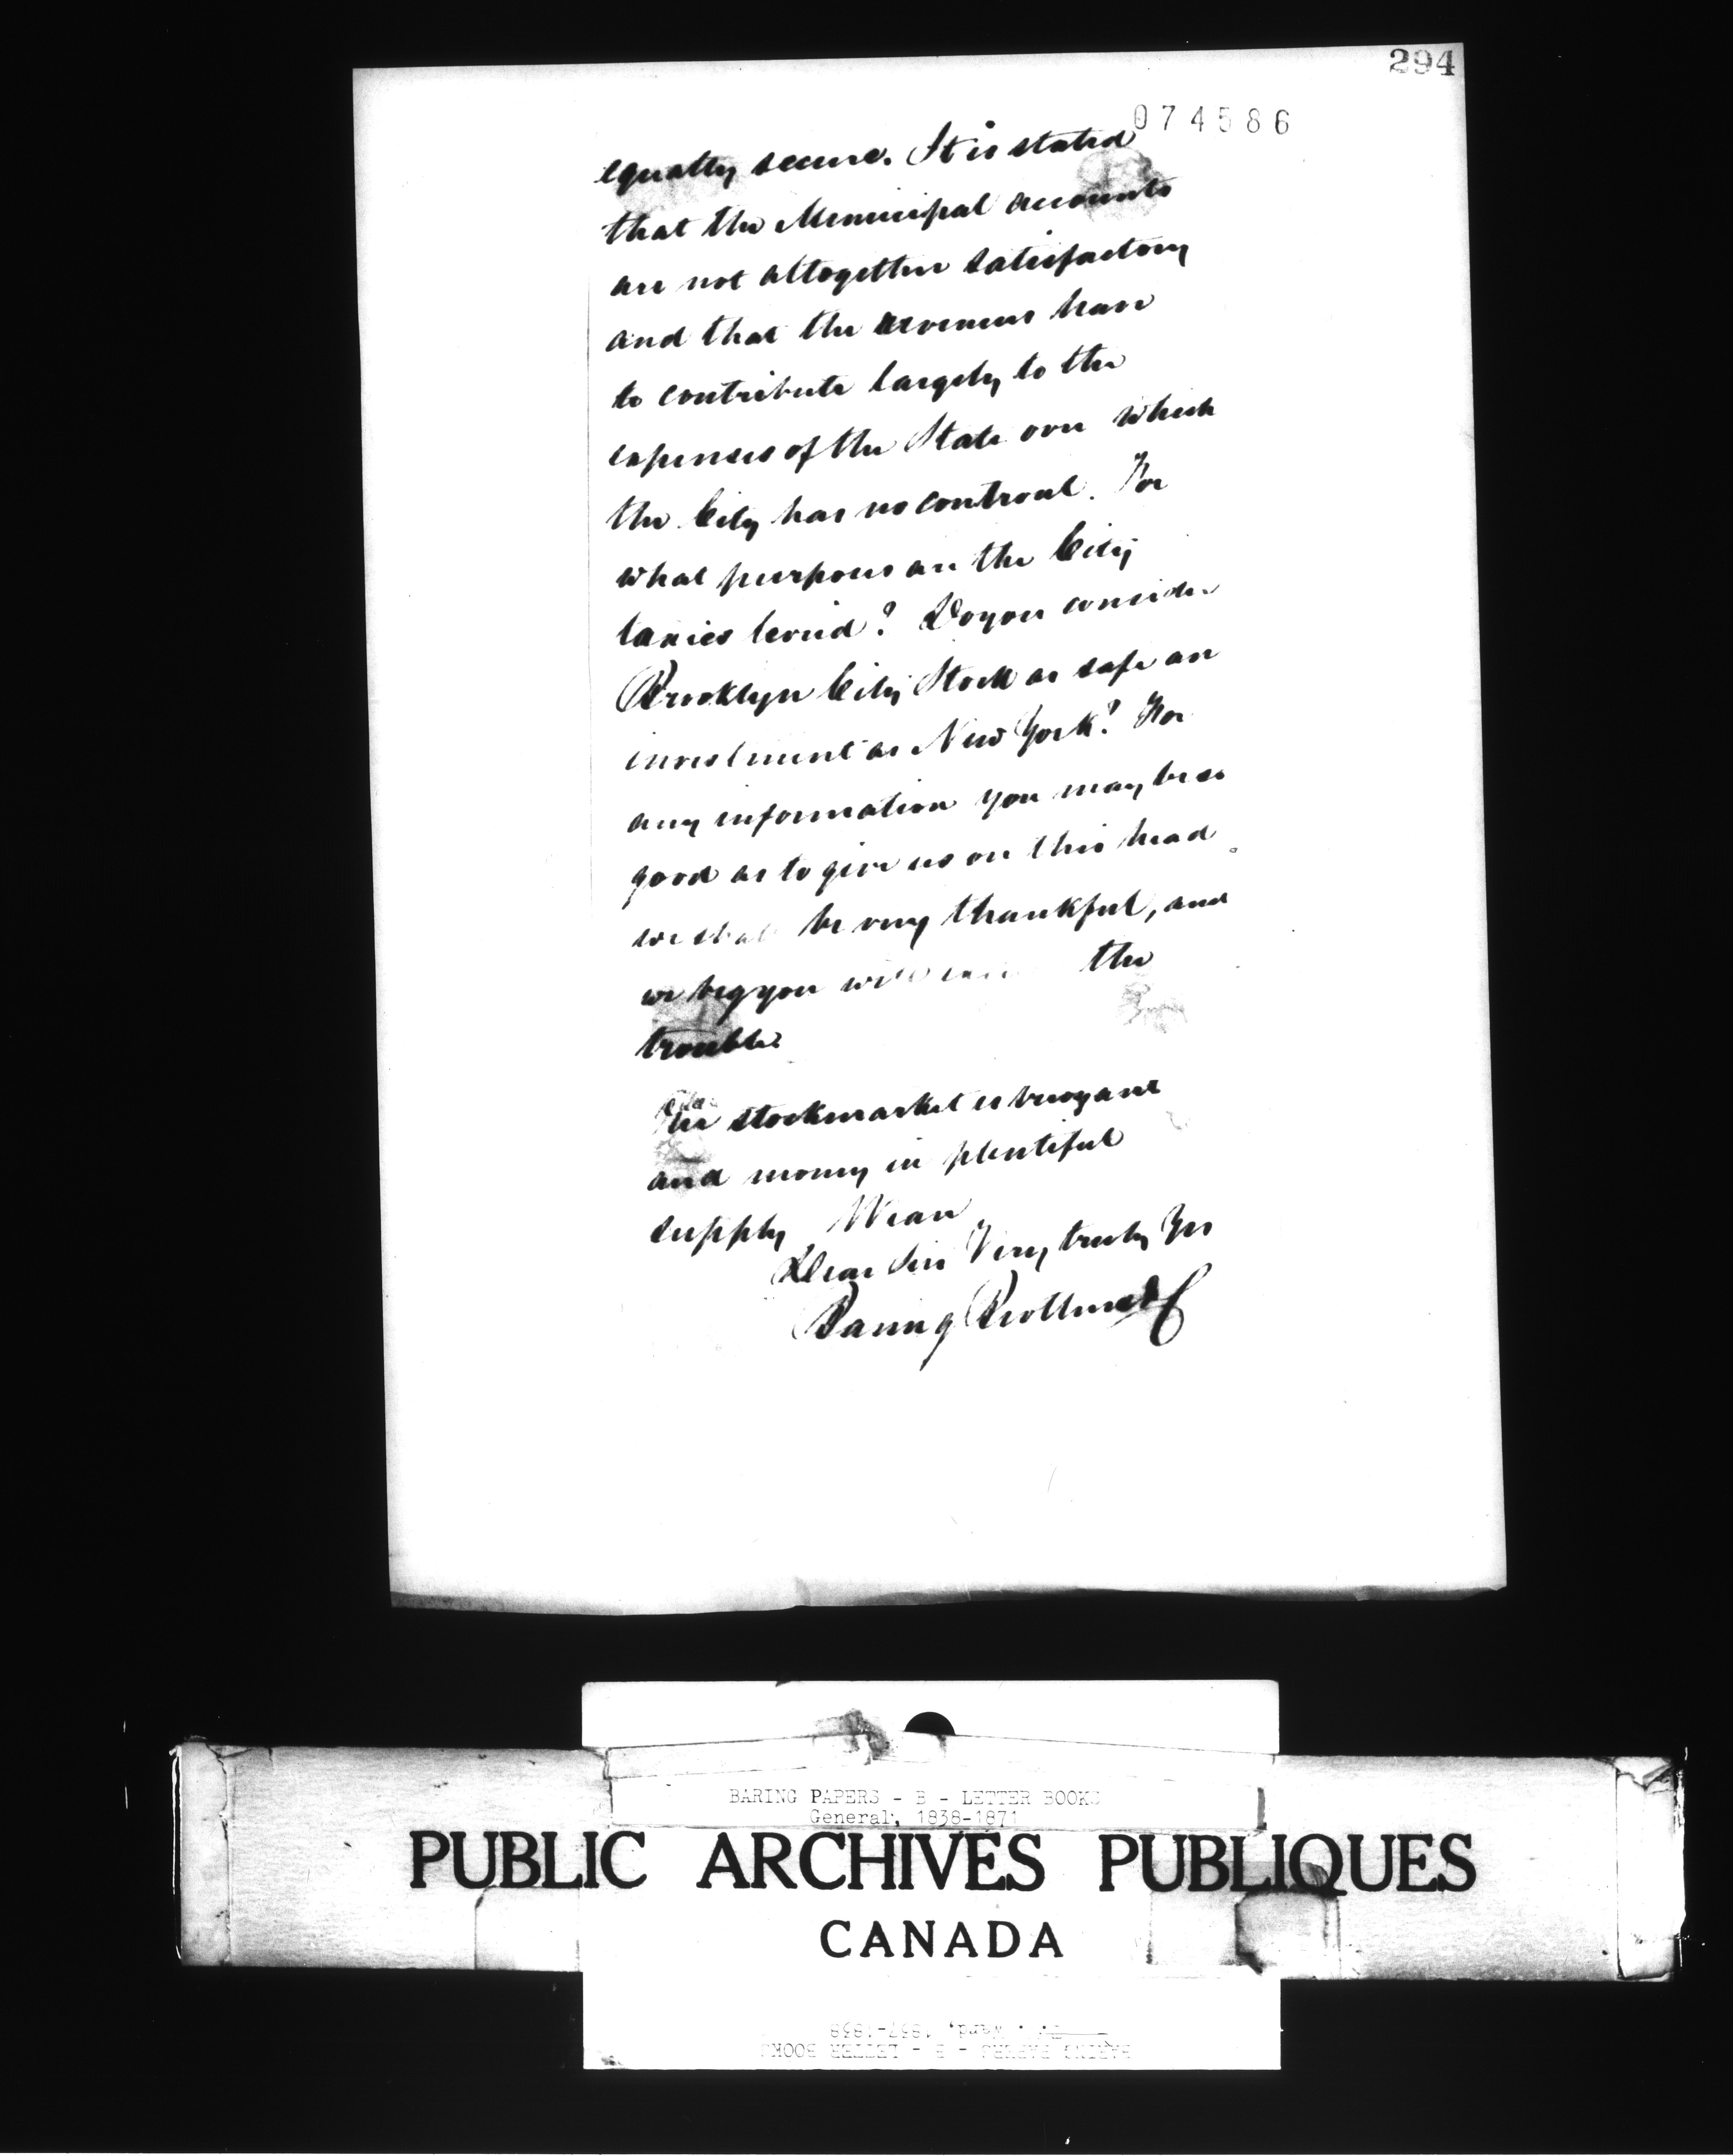 294
074586
equally secure. It is stated
that the Municipal accounts
are not altogether satisfactory
and that the revenues have
to contribute largely to the
expenses of the State over which
the City has no controul. For
what purposes are the City
taxies levied? Do you consider
Brooklyn City Stock as safe an
investment as New York? For
any information you may be so
good as to give us on this head
we shall be very thankful, and
we beg you will the
trouble.
The stockmarket is buoyant
and money in plentiful
supply We are
Dear Sir Very truly Yrs
Baring Brothers & C
BARING PAPERS - B - LETTER BOOKS
General, 1838-1871
PUBLIC ARCHIVES PUBLIQUES
CANADA
Ward, 1837-1838
BARING PAPERS - B - LETTER BOOKS